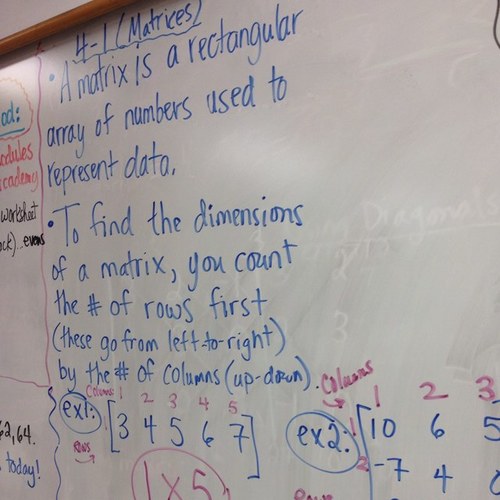 4-1 (Matrices)
• A matrix is a rectangular
array of numbers used to
represent data.
• To find the dimensions
of a matrix, you count
the # of rows first
(these go from left-to-right)
by the # of columns (up-down).
Columns 1 2 3 4 5
ex1: [3 4 5 6 7]
rows →
1 X 5
Columns →
1 2 3
ex2: 1 [10 6 5
2 -7 4
rows
worksheet
evens
62, 64.
today!